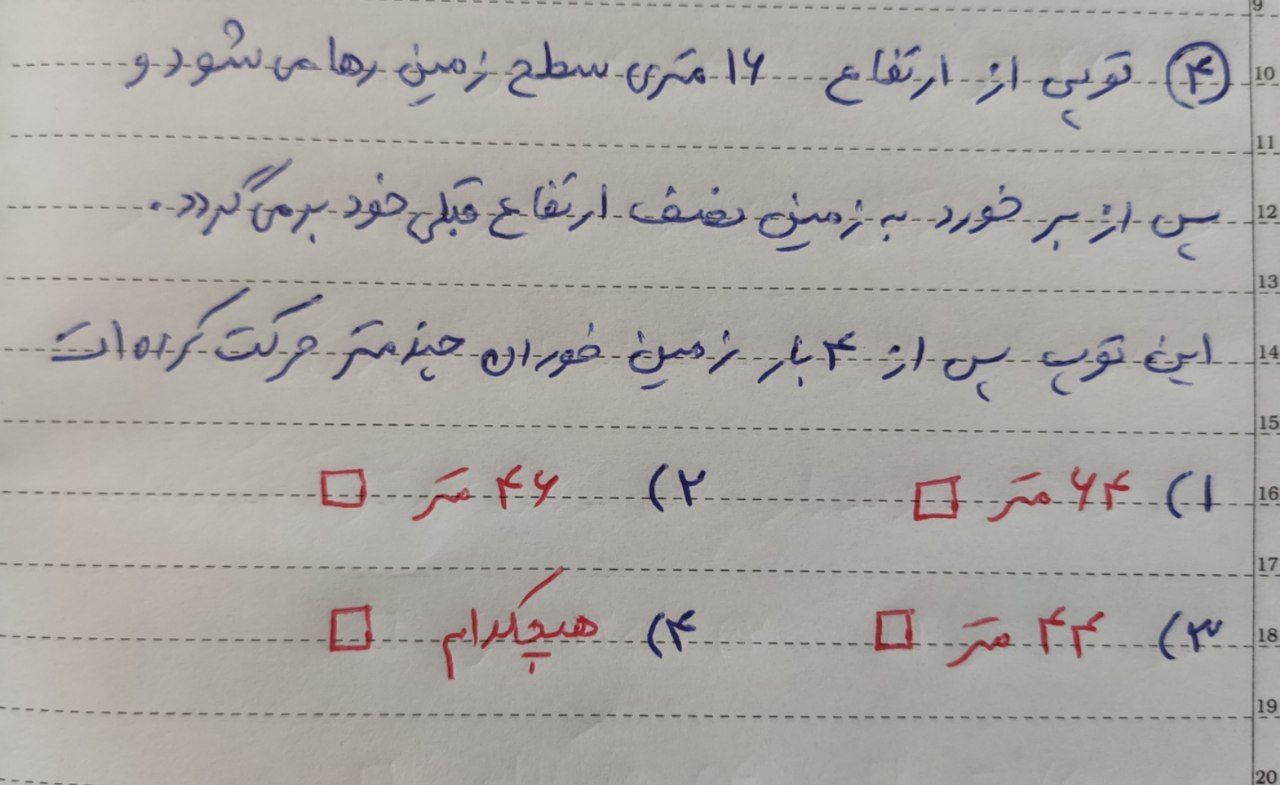 ۴ توپی از ارتفاع ۱۶ متری سطح زمین رها می شود و
پس از بر خورد به زمین نصف ارتفاع قبلی خود برمی گردد.
این توپ پس از ۴ بار زمین خوردن چند متر حرکت کرده است
۱) ۶۴ متر ۲) ۴۶ متر
۳) ۴۴ متر ۴) هیچکدام
9
10
11
12
13
14
15
16
17
18
19
20